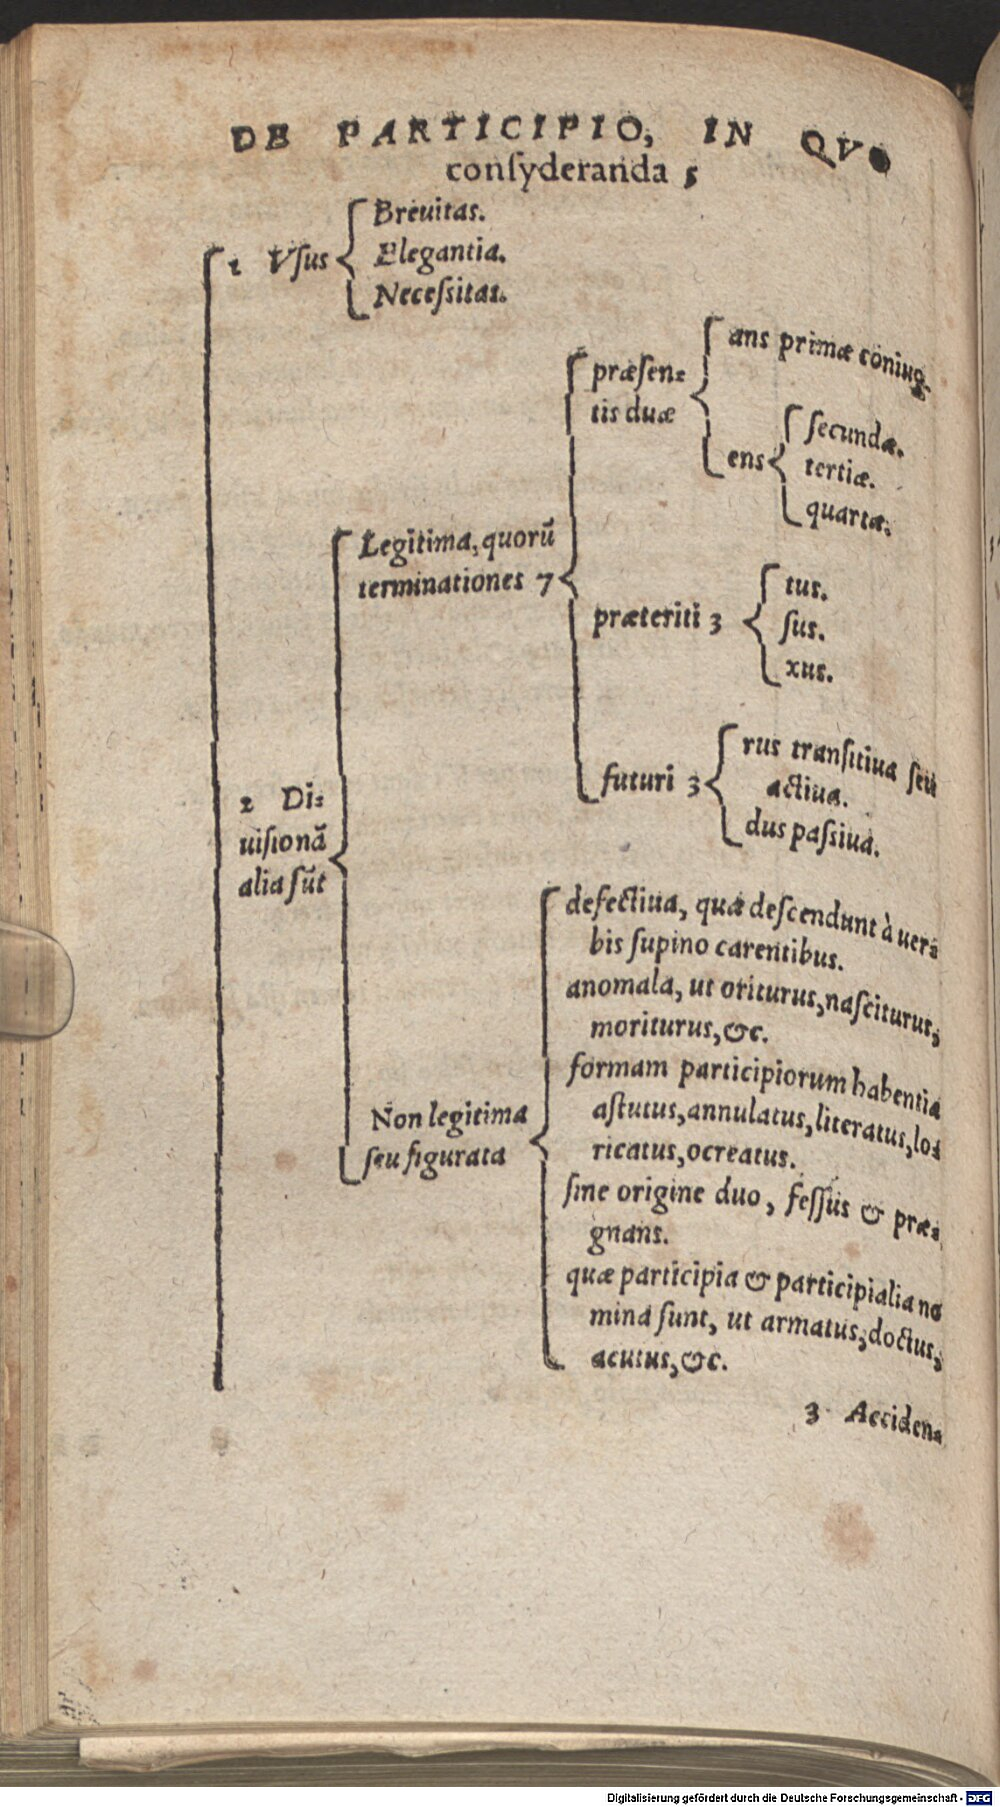 DE PARTICIPIO, IN QVO
conſyderanda 5
1 Vſus
Breuitas.
Elegantia.
Neceſsitas.
2 Di⸗
uiſionā
alia sūt
Legitima, quorū
terminationes 7
præſen⸗
tis duæ
ans primæ coniug.
ens
ſecundæ.
tertiæ.
quartæ.
præteriti 3
tus.
ſus.
xus.
futuri 3
rus tranſitiua ſeu
actiua.
dus paſsiua.
Non legitima
ſeu figurata
defectiua, quæ deſcendunt à uer⸗
bis ſupino carentibus.
anomala, ut oriturus, naſciturus,
moriturus, &c.
formam participiorum habentia
aſtutus, annulatus, literatus, lo⸗
ricatus, ocreatus.
ſine origine duo, feſſus & præ⸗
gnans.
quæ participia & participialia no
mina ſunt, ut armatus, doctus,
acutus, &c.
3 Acciden⸗
Digitalisierung gefördert durch die Deutsche Forschungsgemeinschaft - DFG